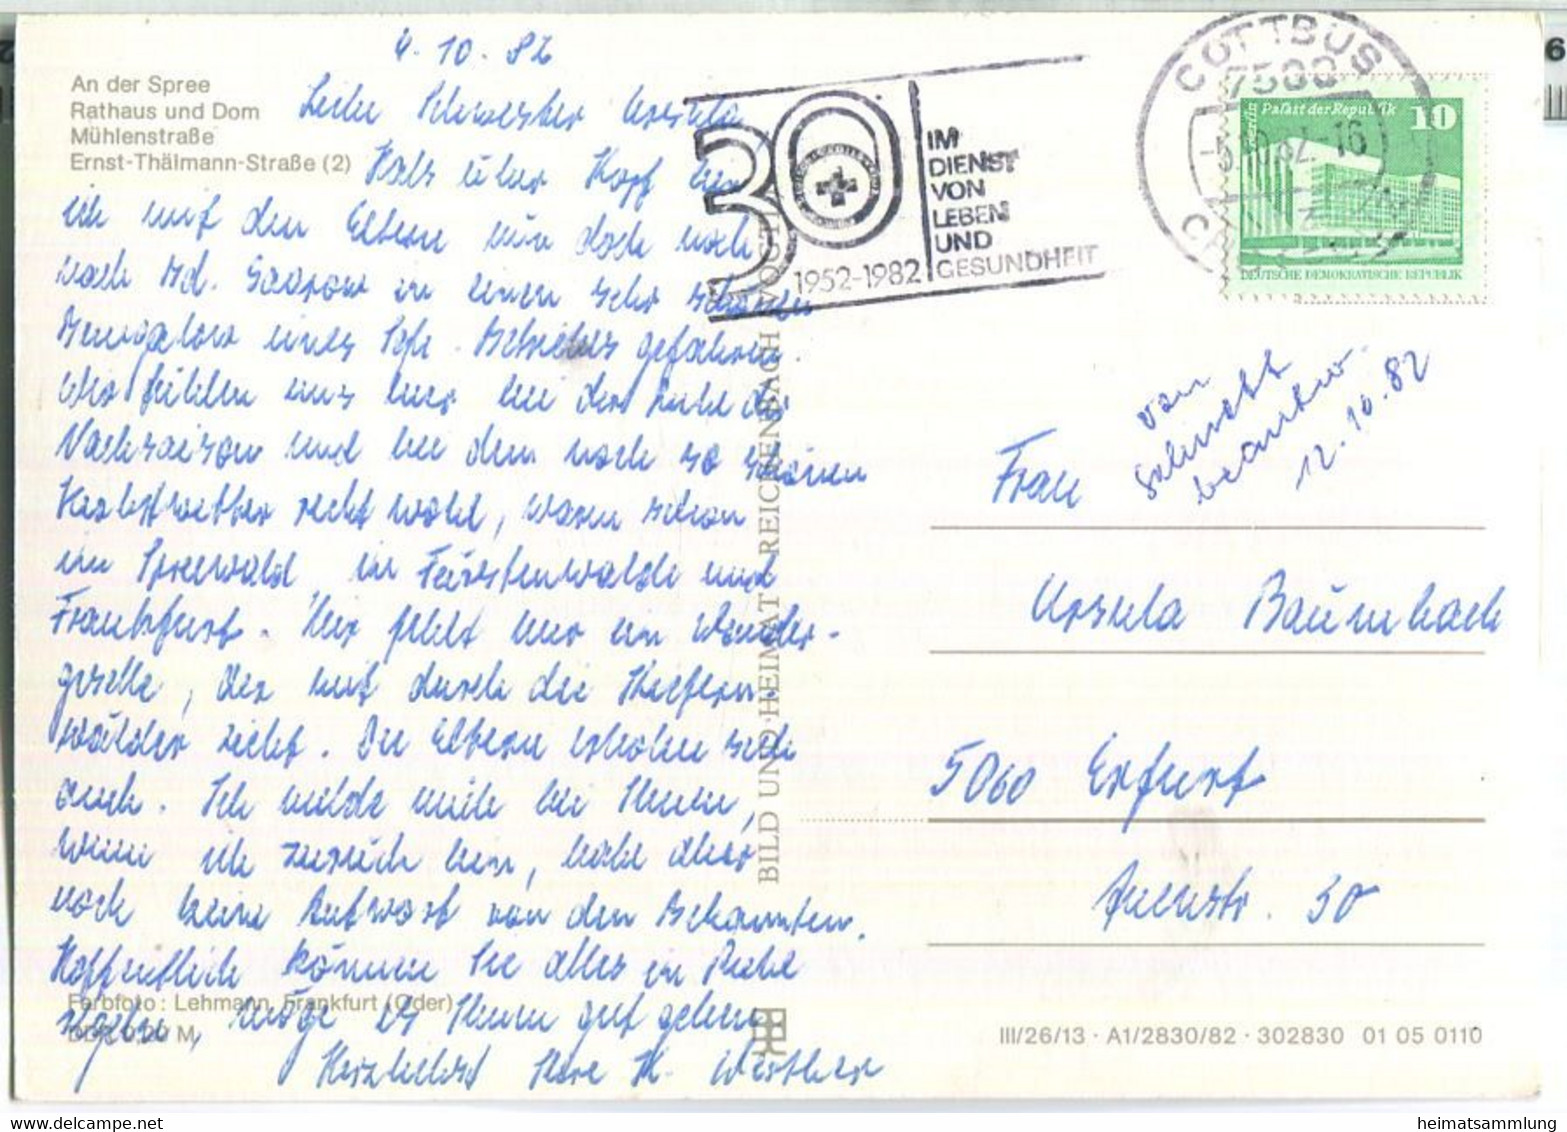 4.10.82
An der Spree
Rathaus und Dom
Mühlenstraße
Ernst-Thälmann-Straße (2)
Liebe Schwester Ursula,
Hals über Kopf bin
ich mit den Eltern nun doch noch
nach Bd. Saarow in einen sehr schönen
Bungalow eines Betriebes gefahren.
Wir fühlen uns hier bei der Ruhe der
Nachsaison und bei dem noch so schönen
Herbstwetter recht wohl, waren schon
im Spreewald in Fürstenwalde und
Frankfurt. Mir fehlt nur ein Wander-
geselle, der mit durch die Kiefern
wälder zieht. Die Eltern erholen sich
auch. Ich melde mich bei Ihnen,
wenn ich zurück bin, habe aber
noch keine Antwort von den Bekannten.
Hoffentlich können Sie alles in Ruhe
angehen, möge es Ihnen gut gehen
Herzlichst Ihre H. Walther
Farbfoto: Lehmann, Frankfurt (Oder)
DDR 0,20 M
BILD UND HEIMAT REICHENBACH
30
1952-1982
IM
DIENST
VON
LEBEN
UND
GESUNDHEIT
COTTBUS
7500
Palast der Republik
10
DEUTSCHE DEMOKRATISCHE REPUBLIK
von
beantw.
12.10.82
Frau
Ursula Baumbach
5060 Erfurt
30
III/26/13 · A1/2830/82 · 302830 01 05 0110
heimatsammlung